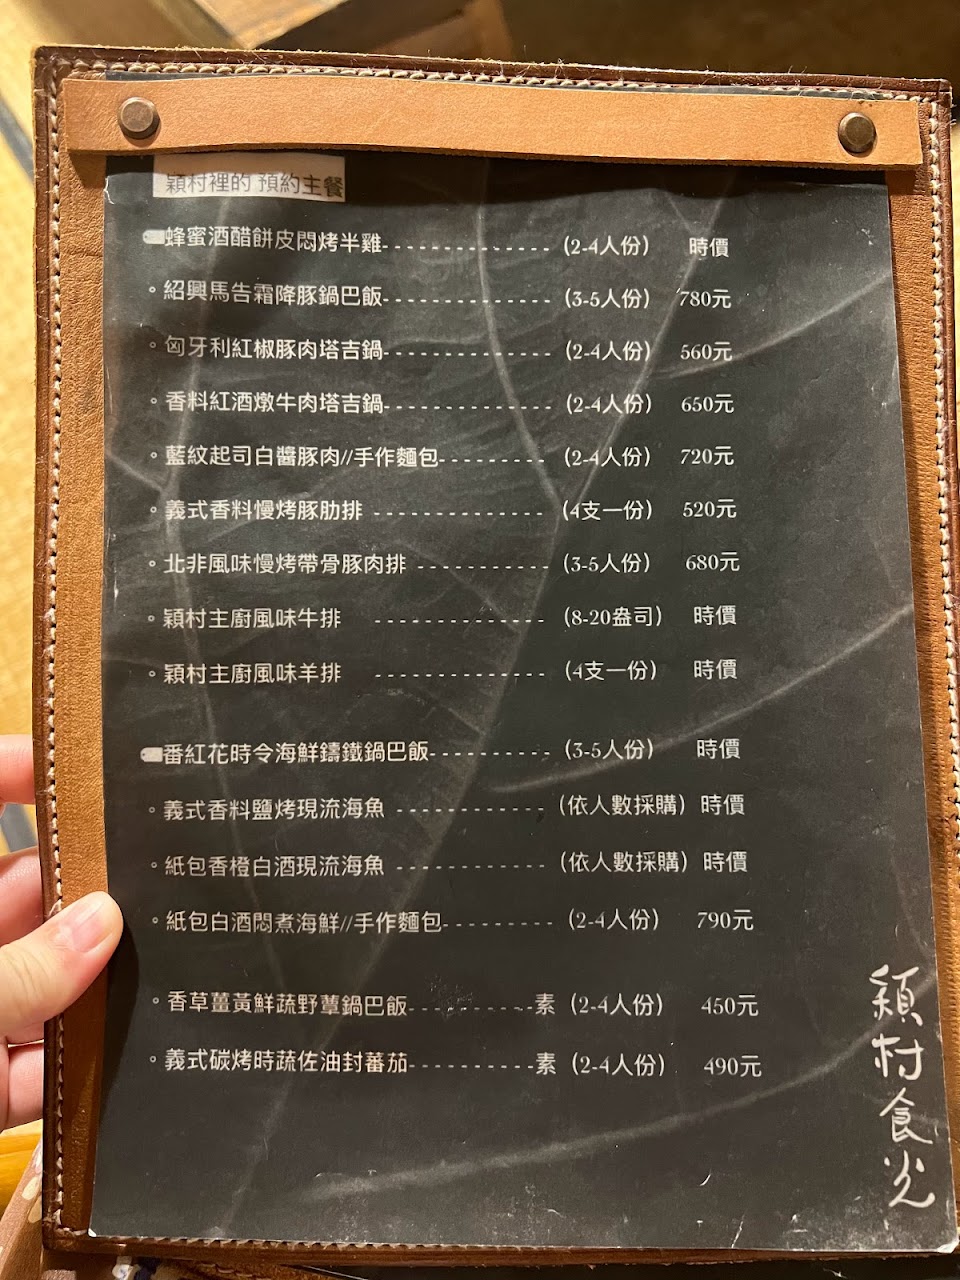 穎村裡的 預約主餐
蜂蜜酒醋餅皮悶烤半雞---------------- (2-4人份) 時價
◦紹興馬告霜降豚鍋巴飯---------------- (3-5人份) 780元
◦匈牙利紅椒豚肉塔吉鍋---------------- (2-4人份) 560元
◦香料紅酒燉牛肉塔吉鍋---------------- (2-4人份) 650元
◦藍紋起司白醬豚肉//手作麵包--------- (2-4人份) 720元
◦義式香料慢烤豚肋排 --------------- (4支一份) 520元
◦北非風味慢烤帶骨豚肉排 ----------- (3-5人份) 680元
◦穎村主廚風味牛排 --------------- (8-20盎司) 時價
◦穎村主廚風味羊排 --------------- (4支一份) 時價
番紅花時令海鮮鑄鐵鍋巴飯---------- (3-5人份) 時價
◦義式香料鹽烤現流海魚 ------------- (依人數採購) 時價
◦紙包香橙白酒現流海魚 ------------- (依人數採購) 時價
◦紙包白酒悶煮海鮮//手作麵包--------- (2-4人份) 790元
◦香草薑黃鮮蔬野蕈鍋巴飯-----------素 (2-4人份) 450元
◦義式碳烤時蔬佐油封蕃茄-----------素 (2-4人份) 490元
穎村食光